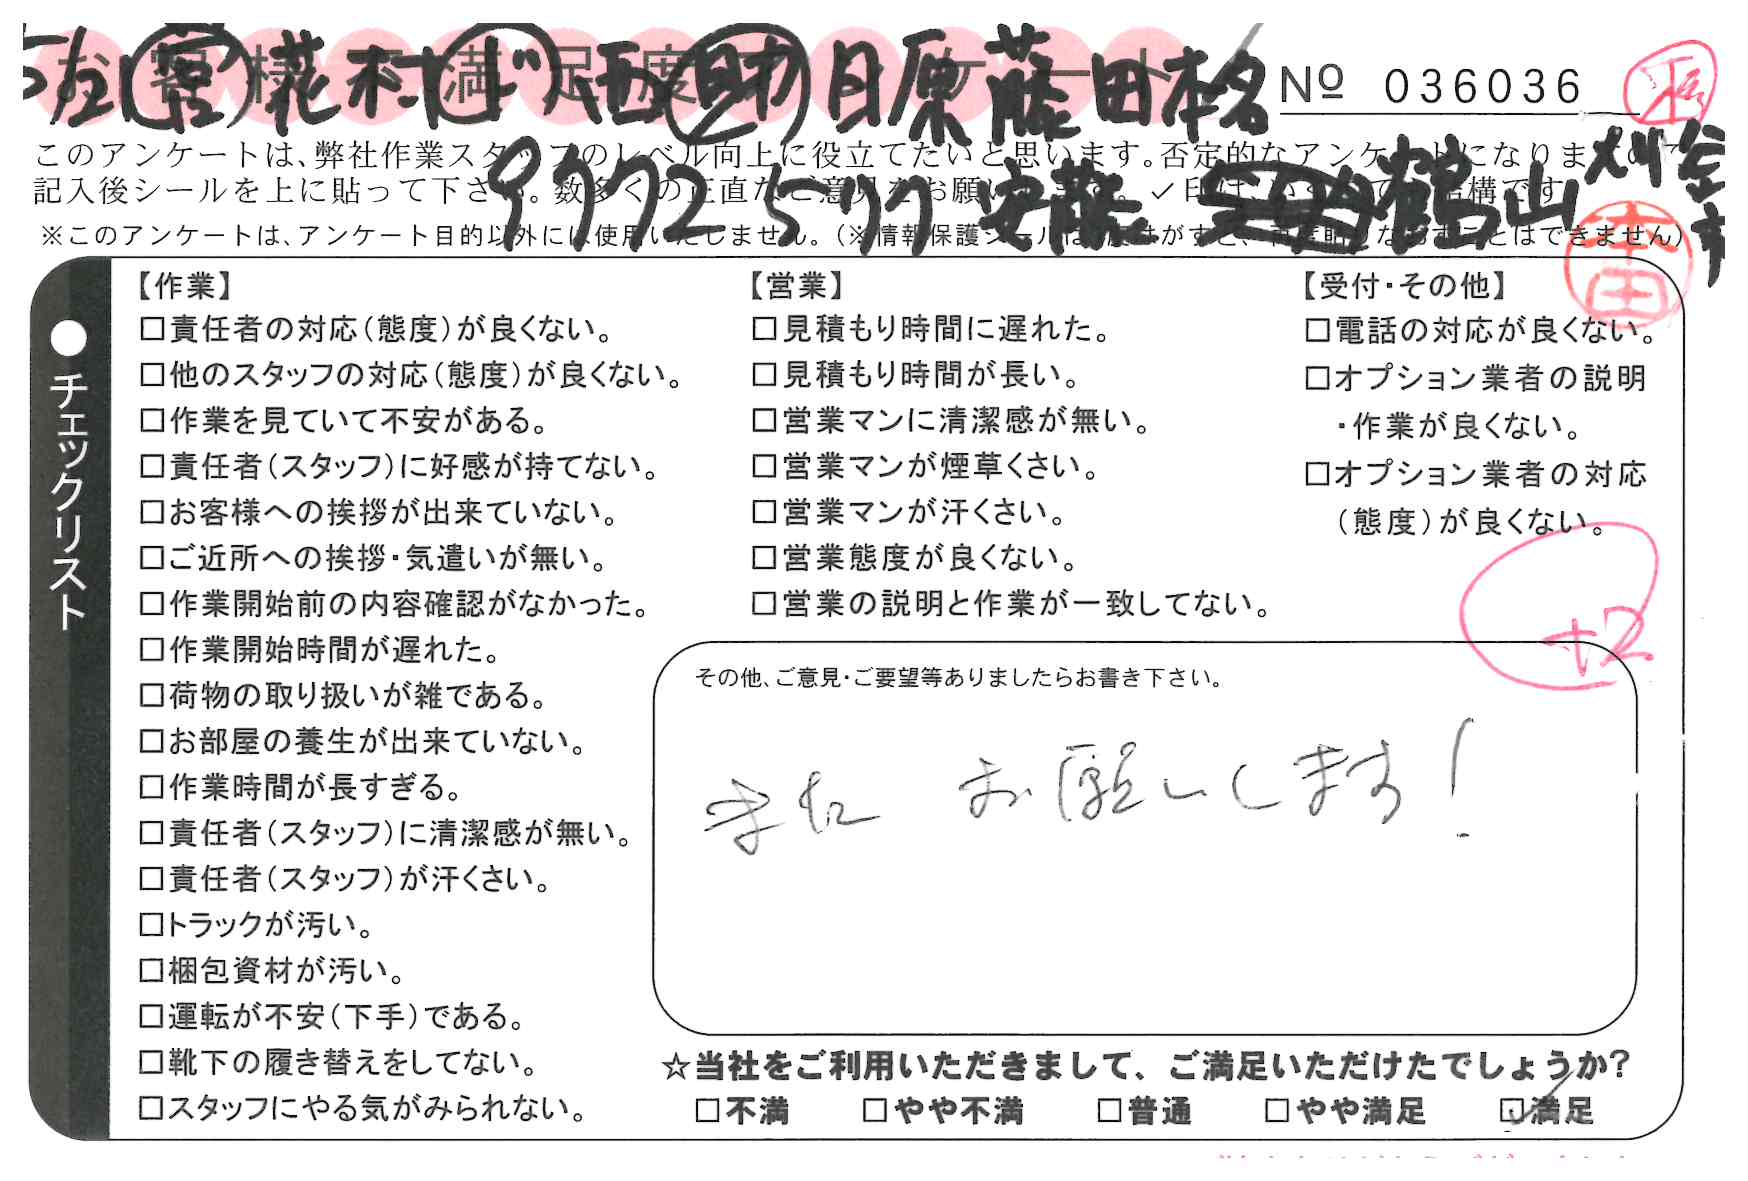 お客様不満足度アンケート
花村 西 助 日原 藤田 本名
№ 036036
このアンケートは、弊社作業スタッフのレベル向上に役立てたいと思います。否定的なアンケートになりますので
記入後シールを上に貼って下さい。数多くの正直なご意見をお願いします。✓印はいくつでも結構です
9772 577 安藤 鶴山
※このアンケートは、アンケート目的以外には使用いたしません。(※情報保護シールは1度はがすと、再度貼りなおすことはできません)
本田
●チェックリスト
【作業】
□責任者の対応(態度)が良くない。
□他のスタッフの対応(態度)が良くない。
□作業を見ていて不安がある。
□責任者(スタッフ)に好感が持てない。
□お客様への挨拶が出来ていない。
□ご近所への挨拶・気遣いが無い。
□作業開始前の内容確認がなかった。
□作業開始時間が遅れた。
□荷物の取り扱いが雑である。
□お部屋の養生が出来ていない。
□作業時間が長すぎる。
□責任者(スタッフ)に清潔感が無い。
□責任者(スタッフ)が汗くさい。
□トラックが汚い。
□梱包資材が汚い。
□運転が不安(下手)である。
□靴下の履き替えをしてない。
□スタッフにやる気がみられない。
【営業】
□見積もり時間に遅れた。
□見積もり時間が長い。
□営業マンに清潔感が無い。
□営業マンが煙草くさい。
□営業マンが汗くさい。
□営業態度が良くない。
□営業の説明と作業が一致してない。
【受付・その他】
□電話の対応が良くない。
□オプション業者の説明
・作業が良くない。
□オプション業者の対応
(態度)が良くない。
+2
その他、ご意見・ご要望等ありましたらお書き下さい。
また お願いします!
☆当社をご利用いただきまして、ご満足いただけたでしょうか?
□不満 □やや不満 □普通 □やや満足 ☑満足